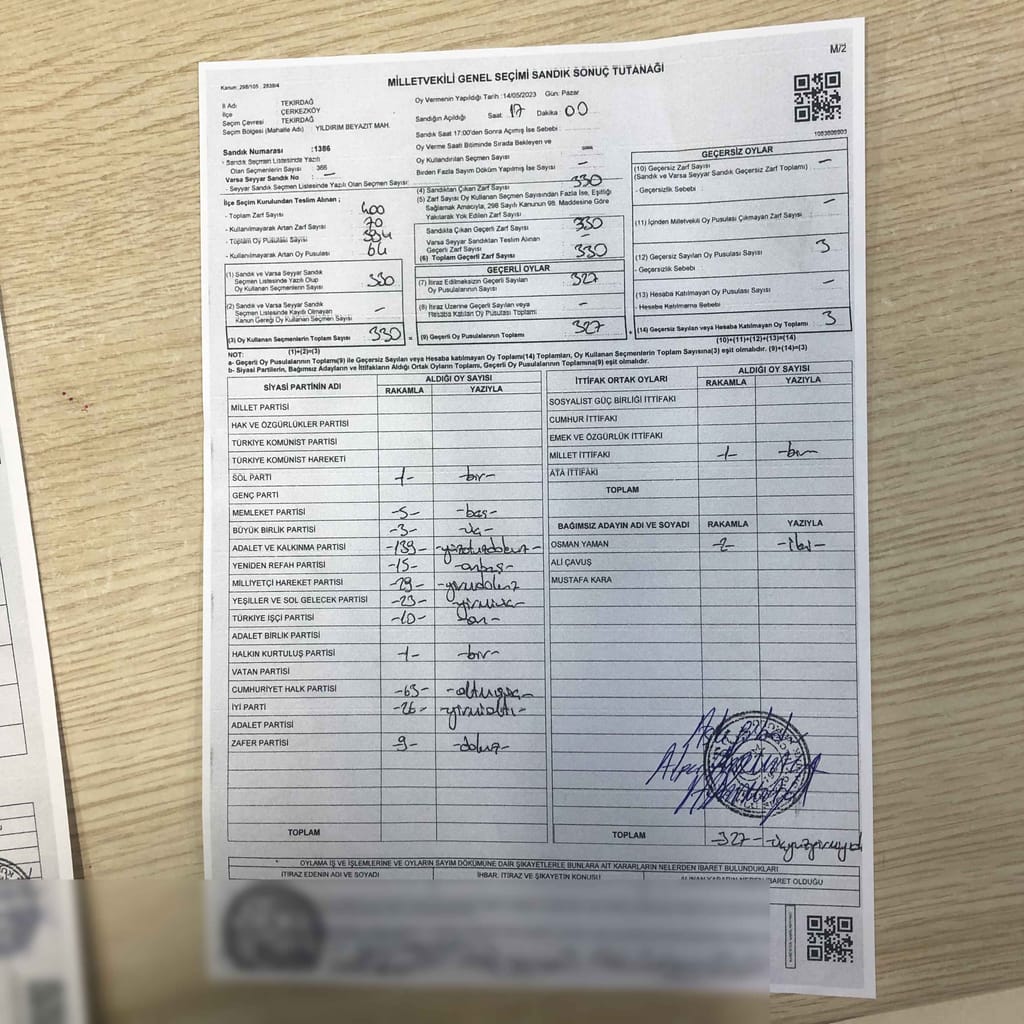 M/2
MİLLETVEKİLİ GENEL SEÇİMİ SANDIK SONUÇ TUTANAĞI
Kanun: 298/105 , 2839/4
Oy Vermenin Yapıldığı Tarih : 14/05/2023 Gün: Pazar
İl Adı TEKİRDAĞ
İlçe ÇERKEZKÖY
Seçim Çevresi TEKİRDAĞ
Seçim Bölgesi (Mahalle Adı) YILDIRIM BEYAZIT MAH.
Sandığın Açıldığı Saat 17 Dakika 00
Sandık Saat 17:00'den Sonra Açımış İse Sebebi :
Oy Verme Saati Bitiminde Sırada Bekleyen ve
Oy Kullandırılan Seçmen Sayısı
Birden Fazla Sayım Döküm Yapılmış İse Sayısı —
Sandık Numarası :1386
- Sandık Seçmen Listesinde Yazılı
Olan Seçmenlerin Sayısı : 366
Varsa Seyyar Sandık No : —
- Seyyar Sandık Seçmen Listesinde Yazılı Olan Seçmen Sayısı:
İlçe Seçim Kurulundan Teslim Alınan ;
- Toplam Zarf Sayısı 400
- Kullanılmayarak Artan Zarf Sayısı 70
- Toplam Oy Pusulası Sayısı 394
- Kullanılmayarak Artan Oy Pusulası 64
(1) Sandık ve Varsa Seyyar Sandık
Seçmen Listesinde Yazılı Olup
Oy Kullanan Seçmenlerin Sayısı 330
(2) Sandık ve Varsa Seyyar Sandık
Seçmen Listesinde Kayıtlı Olmayan
Kanun Gereği Oy Kullanan Seçmen Sayısı —
(3) Oy Kullanan Seçmenlerin Toplam Sayısı 330
(1)+(2)=(3)
(4) Sandıktan Çıkan Zarf Sayısı 330
(5) Zarf Sayısı Oy Kullanan Seçmen Sayısından Fazla İse, Eşitliği
Sağlamak Amacıyla, 298 Sayılı Kanunun 98. Maddesine Göre
Yakılarak Yok Edilen Zarf Sayısı
Sandıkta Çıkan Geçerli Zarf Sayısı 330
Varsa Seyyar Sandıktan Teslim Alınan
Geçerli Zarf Sayısı —
(6) Toplam Geçerli Zarf Sayısı 330
GEÇERLİ OYLAR
(7) İtiraz Edilmeksizin Geçerli Sayılan
Oy Pusulalarının Sayısı 327
(8) İtiraz Üzerine Geçerli Sayılan veya
Hesaba Katılan Oy Pusulası Toplamı —
(9) Geçerli Oy Pusulalarının Toplamı 327
1083806803
GEÇERSİZ OYLAR
(10) Geçersiz Zarf Sayısı —
(Sandık ve Varsa Seyyar Sandık Geçersiz Zarf Toplamı)
- Geçersizlik Sebebi :
(11) İçinden Milletvekili Oy Pusulası Çıkmayan Zarf Sayısı —
(12) Geçersiz Sayılan Oy Pusulası Sayısı 3
- Geçersizlik Sebebi
(13) Hesaba Katılmayan Oy Pusulası Sayısı —
- Hesaba Katılmama Sebebi
(14) Geçersiz Sayılan veya Hesaba Katılmayan Oy Toplamı 3
(10)+(11)+(12)+(13)=(14)
NOT:
a- Geçerli Oy Pusulalarının Toplamı(9) ile Geçersiz Sayılan veya Hesaba katılmayan Oy Toplamı(14) Toplamları, Oy Kullanan Seçmenlerin Toplam Sayısına(3) eşit olmalıdır. (9)+(14)=(3)
b- Siyasi Partilerin, Bağımsız Adayların ve İttifakların Aldığı Oy Ortak Oyların Toplamı, Geçerli Oy Pusulalarının Toplamına(9) eşit olmalıdır.
SİYASİ PARTİNİN ADI ALDIĞI OY SAYISI
RAKAMLA YAZIYLA
MİLLET PARTİSİ
HAK VE ÖZGÜRLÜKLER PARTİSİ
TÜRKİYE KOMÜNİST PARTİSİ
TÜRKİYE KOMÜNİST HAREKETİ
SOL PARTİ -1- -bir-
GENÇ PARTİ
MEMLEKET PARTİSİ -5- -beş-
BÜYÜK BİRLİK PARTİSİ -3- -üç-
ADALET VE KALKINMA PARTİSİ -139- -yüzotuzdokuz-
YENİDEN REFAH PARTİSİ -15- -onbeş-
MİLLİYETÇİ HAREKET PARTİSİ -29- -yirmidokuz
YEŞİLLER VE SOL GELECEK PARTİSİ -23- -yirmiüç-
TÜRKİYE İŞÇİ PARTİSİ -10- -on-
ADALET BİRLİK PARTİSİ
HALKIN KURTULUŞ PARTİSİ -1- -bir-
VATAN PARTİSİ
CUMHURİYET HALK PARTİSİ -63- -altmışüç-
İYİ PARTİ -26- -yirmialtı-
ADALET PARTİSİ
ZAFER PARTİSİ -9- -dokuz-
TOPLAM
İTTİFAK ORTAK OYLARI ALDIĞI OY SAYISI
RAKAMLA YAZIYLA
SOSYALİST GÜÇ BİRLİĞİ İTTİFAKI
CUMHUR İTTİFAKI
EMEK VE ÖZGÜRLÜK İTTİFAKI
MİLLET İTTİFAKI -1- -bir-
ATA İTTİFAKI
TOPLAM
BAĞIMSIZ ADAYIN ADI VE SOYADI RAKAMLA YAZIYLA
OSMAN YAMAN -2- -iki-
ALİ ÇAVUŞ
MUSTAFA KARA
TOPLAM -327- -üçyüzyirmiyedi
OYLAMA İŞ VE İŞLEMLERİNE VE OYLARIN SAYIM DÖKÜMÜNE DAİR ŞİKAYETLERLE BUNLARA AİT KARARLARIN NELERDEN İBARET BULUNDUKLARI
İTİRAZ EDENİN ADI VE SOYADI İHBAR, İTİRAZ VE ŞİKAYETİN KONUSU ALINAN KARARIN NEDEN İBARET OLDUĞU